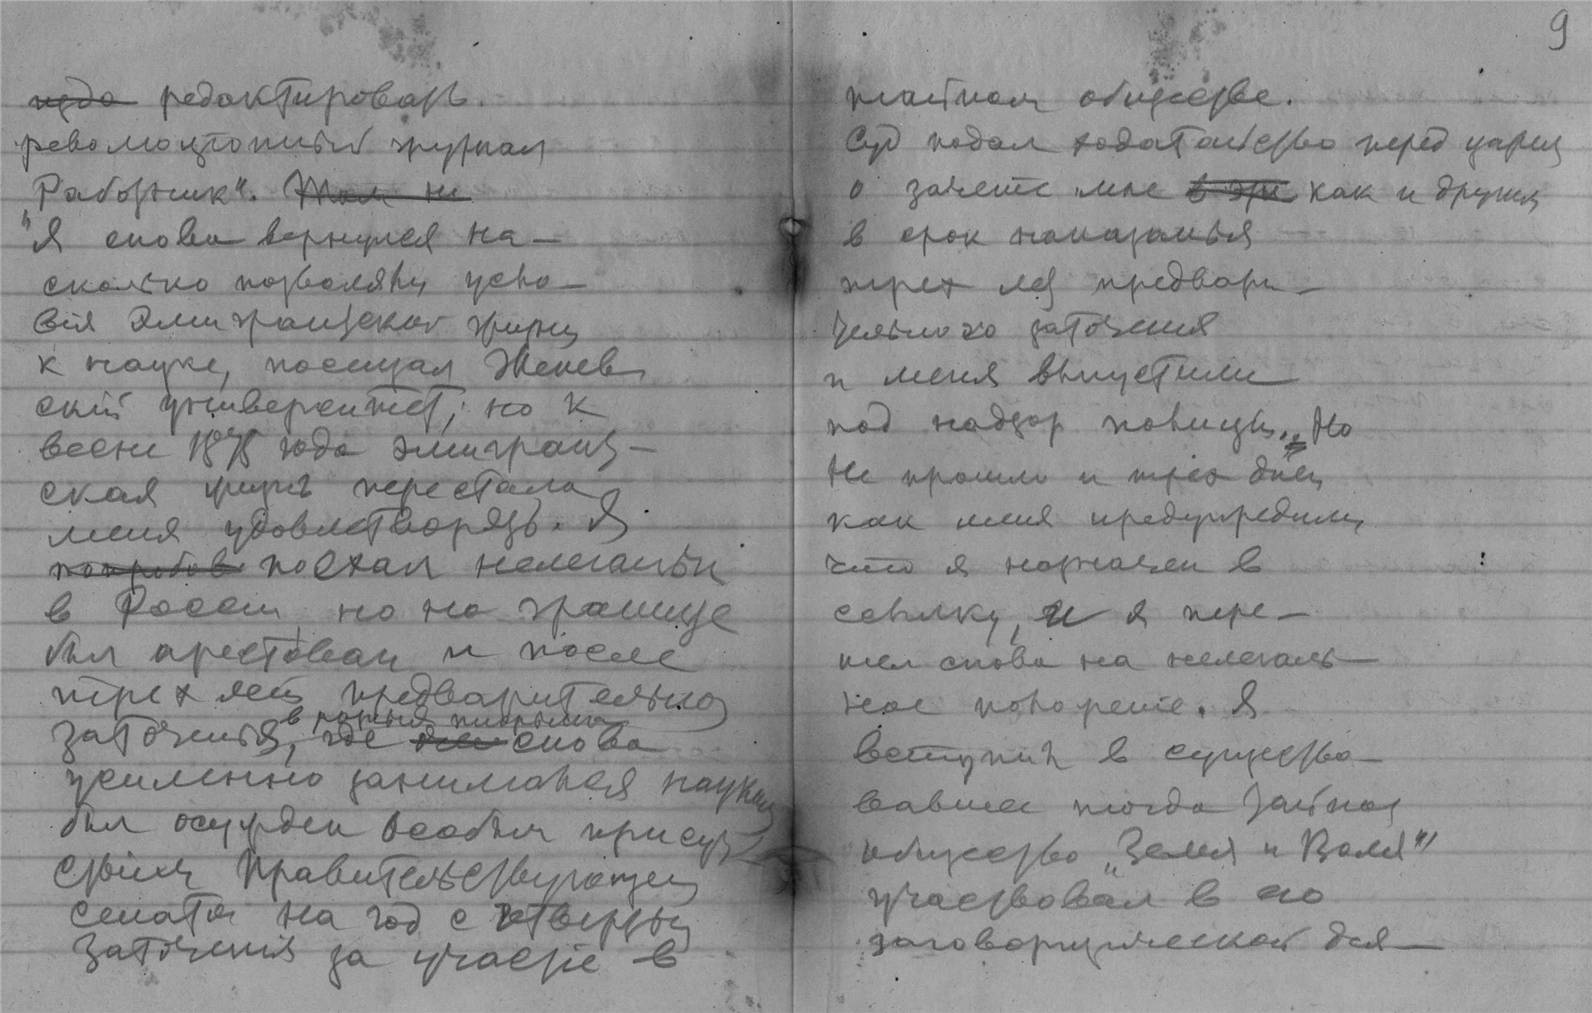 ~~куда~~ редактировать
революціонный журнал
„Работник". ~~Там и~~
Я снова вернулся на-
сколько позволяли усло-
вія эмигрантской жизни
к науке, посещал Женев
ский университет, но к
весне 1875 года эмигрант-
ская жизнь перестала
меня удовлетворять. Я
~~попробов~~ поехал нелегально
в Россию но на границе
был арестован и после
трех лет предварительного
заточенія, где снова
в разныя тюрьмы
усиленно занимался науками
был осужден особым присут-
ствием Правительствующего
сената на год с четвертью
заточенія за участіе в
9
тайном обществе.
Суд подал ходатайство перед царем
о зачете мне ~~в эти~~ как и другим
в срок наказанья
трех лет предвари-
тельного заточения
и меня выпустили
под надзор полиции. Но
не прошло и трех дней
как меня предупредили
что я назначен в
ссылку, и я пере-
шел снова на нелегаль-
ное положеніе. Я
вступил в существо-
вавшее тогда тайное
общество „Земля и Воля"
участвовал в его
заговорщической дея-